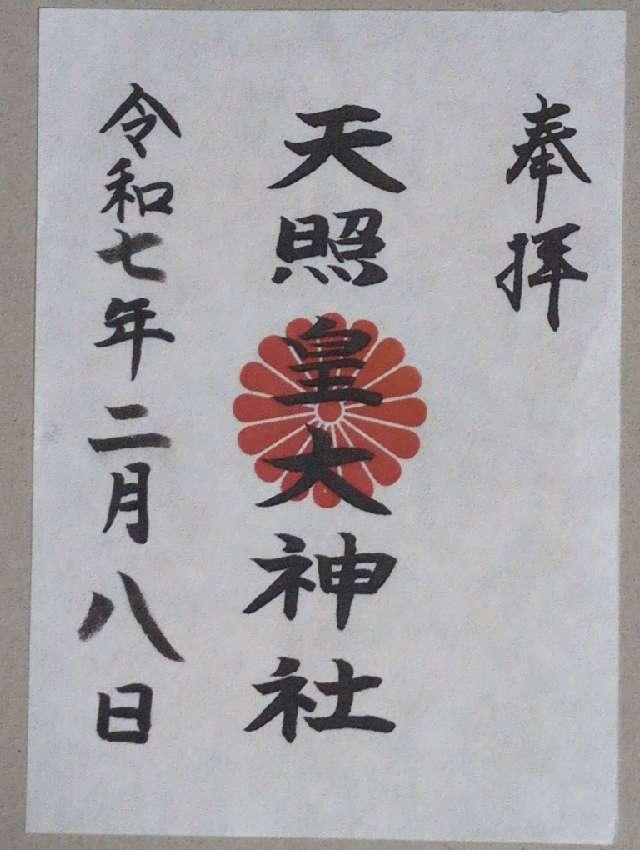 奉拝
天照皇大神社
令和七年二月八日